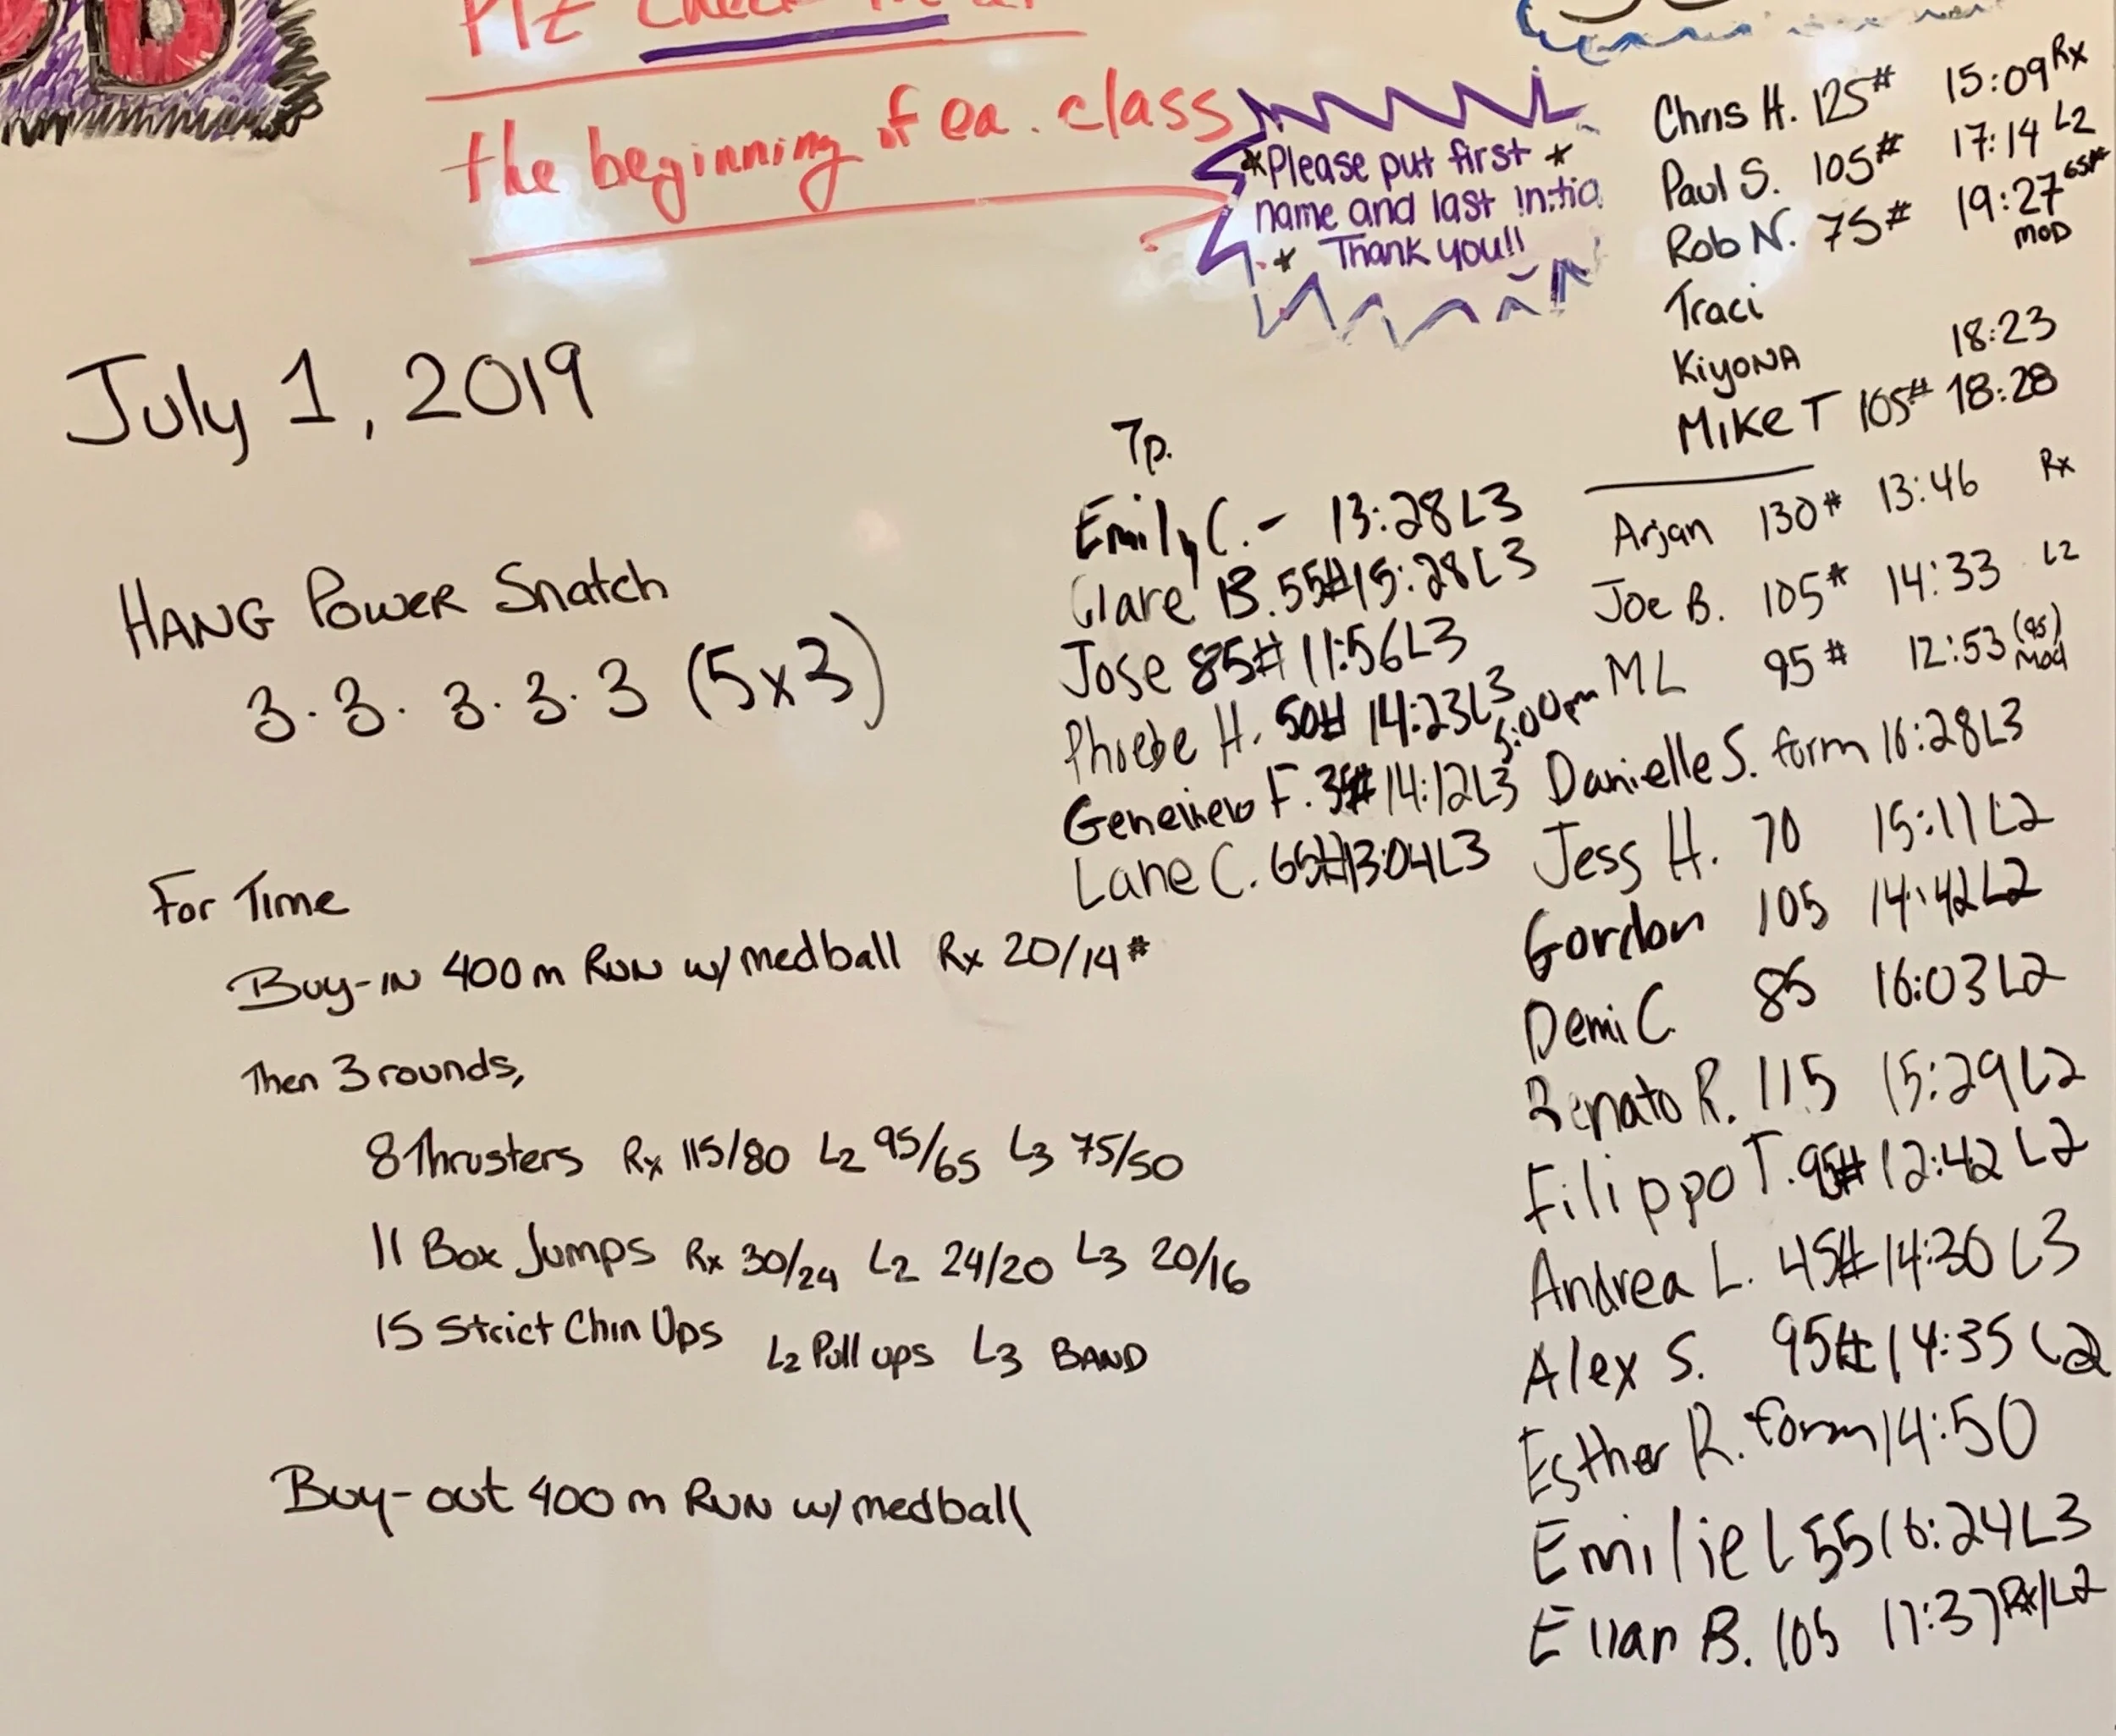 the beginning of ea. class
*Please put first *
name and last initia
* Thank you!!
July 1, 2019
HANG Power Snatch
3. 3. 3. 3. 3 (5x3)
For Time
Buy-IN 400m RUN w/medball Rx 20/14#
Then 3 rounds,
8 Thrusters Rx 115/80 L2 95/65 L3 75/50
11 Box Jumps Rx 30/24 L2 24/20 L3 20/16
15 Strict Chin Ups L2 Pull ups L3 BAND
Buy-out 400m RUN w/medball
7p.
Emily C. - 13:28 L3
Clare B. 55# 15:28 L3
Jose 85# 11:56 L3
Phoebe H. 50# 14:23 L3
F. 14:12 L3
Lane C. 65# 13:04 L3
Chris H. 125# 15:09 Rx
Paul S. 105# 17:14 L2
Rob N. 75# 19:27 65# MOD
Traci
KiyoNA 18:23
Mike T 105# 18:28
Arjan 130# 13:46 Rx
Joe B. 105# 14:33 L2
ML 95# 12:53 (95) Mod
5:00pm
Danielle S. form 16:28 L3
Jess H. 70 15:11 L2
Gordon 105 14:42 L2
Demi C 85 16:03 L2
Renato R. 115 15:29 L2
Filippo T. 95# 12:42 L2
Andrea L. 45# 14:30 L3
Alex S. 95# 14:35 L2
Esther R. form 14:50
Emilie L 55 16:24 L3
B. 105 17:37 Rx/L2